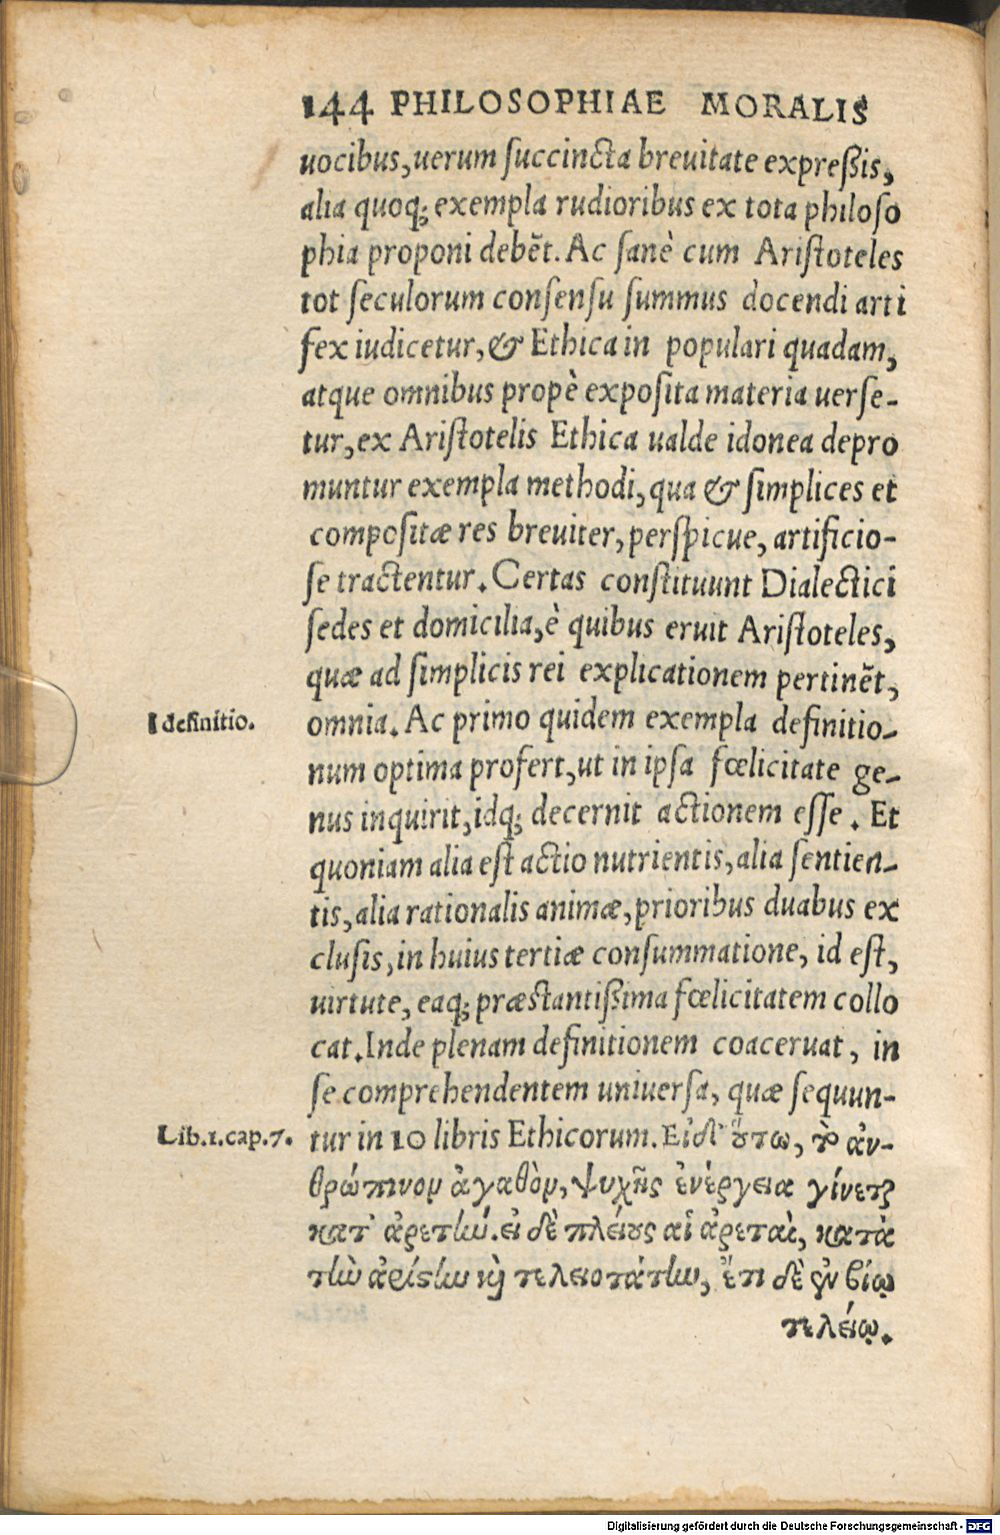 144 PHILOSOPHIAE MORALIS
uocibus, uerum succincta breuitate expreßis,
alia quoq; exempla rudioribus ex tota philoso
phia proponi debēt. Ac sanè cum Aristoteles
tot seculorum consensu summus docendi arti
fex iudicetur, & Ethica in populari quadam,
atque omnibus propè exposita materia uerse-
tur, ex Aristotelis Ethica ualde idonea depro
muntur exempla methodi, qua & simplices et
compositæ res breuiter, perspicue, artificio-
se tractentur. Certas constituunt Dialectici
sedes et domicilia, è quibus eruit Aristoteles,
quæ ad simplicis rei explicationem pertinēt,
1 definitio.
omnia. Ac primo quidem exempla definitio-
num optima profert, ut in ipsa fœlicitate ge-
nus inquirit, idq; decernit actionem esse. Et
quoniam alia est actio nutrientis, alia sentien-
tis, alia rationalis animæ, prioribus duabus ex
clusis, in huius tertiæ consummatione, id est,
uirtute, eaq; præstantißima fœlicitatem collo
cat. Inde plenam definitionem coaceruat, in
se comprehendentem uniuersa, quæ sequun-
Lib. 1. cap. 7.
tur in 10 libris Ethicorum. Εἰ δ' ȣ̔́τω, τὸ ἀν-
θρώπινον ἀγαθὸν, ψυχῆς ἐνέργεια γίνεται
κατ' ἀρετἰώ. εἰ δὲ πλείους αἱ ἀρεταὶ, κατὰ
τἰὼ ἀρίστἰω καὶ τελειοτάτἰω, ἔτι δὲ ἐν βίῳ
τελείῳ.
Digitalisierung gefördert durch die Deutsche Forschungsgemeinschaft - DFG